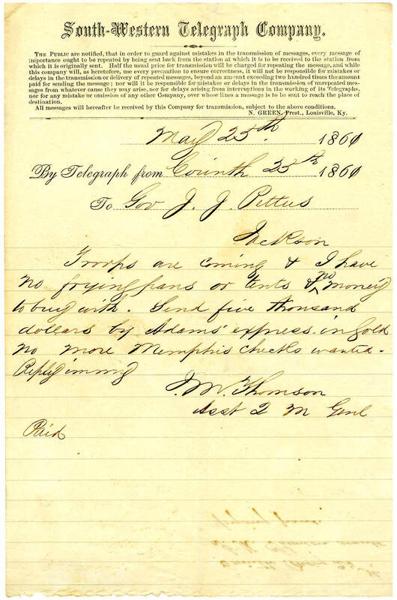 South-Western Telegraph Company.
The Public are notified, that in order to guard against mistakes in the transmission of messages, every message of
importance ought to be repeated by being sent back from the station at which it is to be received to the station from
which it is originally sent. Half the usual price for transmission will be charged for repeating the message, and while
this company will, as heretofore, use every precaution to ensure correctness, it will not be responsible for mistakes or
delays in the transmission or delivery of repeated messages, beyond an amount exceeding two hundred times the amount
paid for sending the message; nor will it be responsible for mistakes or delays in the transmission of unrepeated mes-
sages from whatever cause they may arise, nor for delays arising from interruptions in the working of its Telegraphs,
nor for any mistake or omission of any other Company, over whose lines a message is to be sent to reach the place of
destination.
All messages will hereafter be received by this Company for transmission, subject to the above conditions.
N. GREEN, Prest., Louisville, Ky.
May 25th 1861
By Telegraph from Corinth 25th 1861
To Gov J. J. Pettus
Jackson
Troops are coming & I have
no frying pans or tents & no money
to buy with. Send five thousand
dollars by Adams' express in gold
no more Memphis checks wanted.
Reply immy
J. M. Thomson
Asst Q M Genl